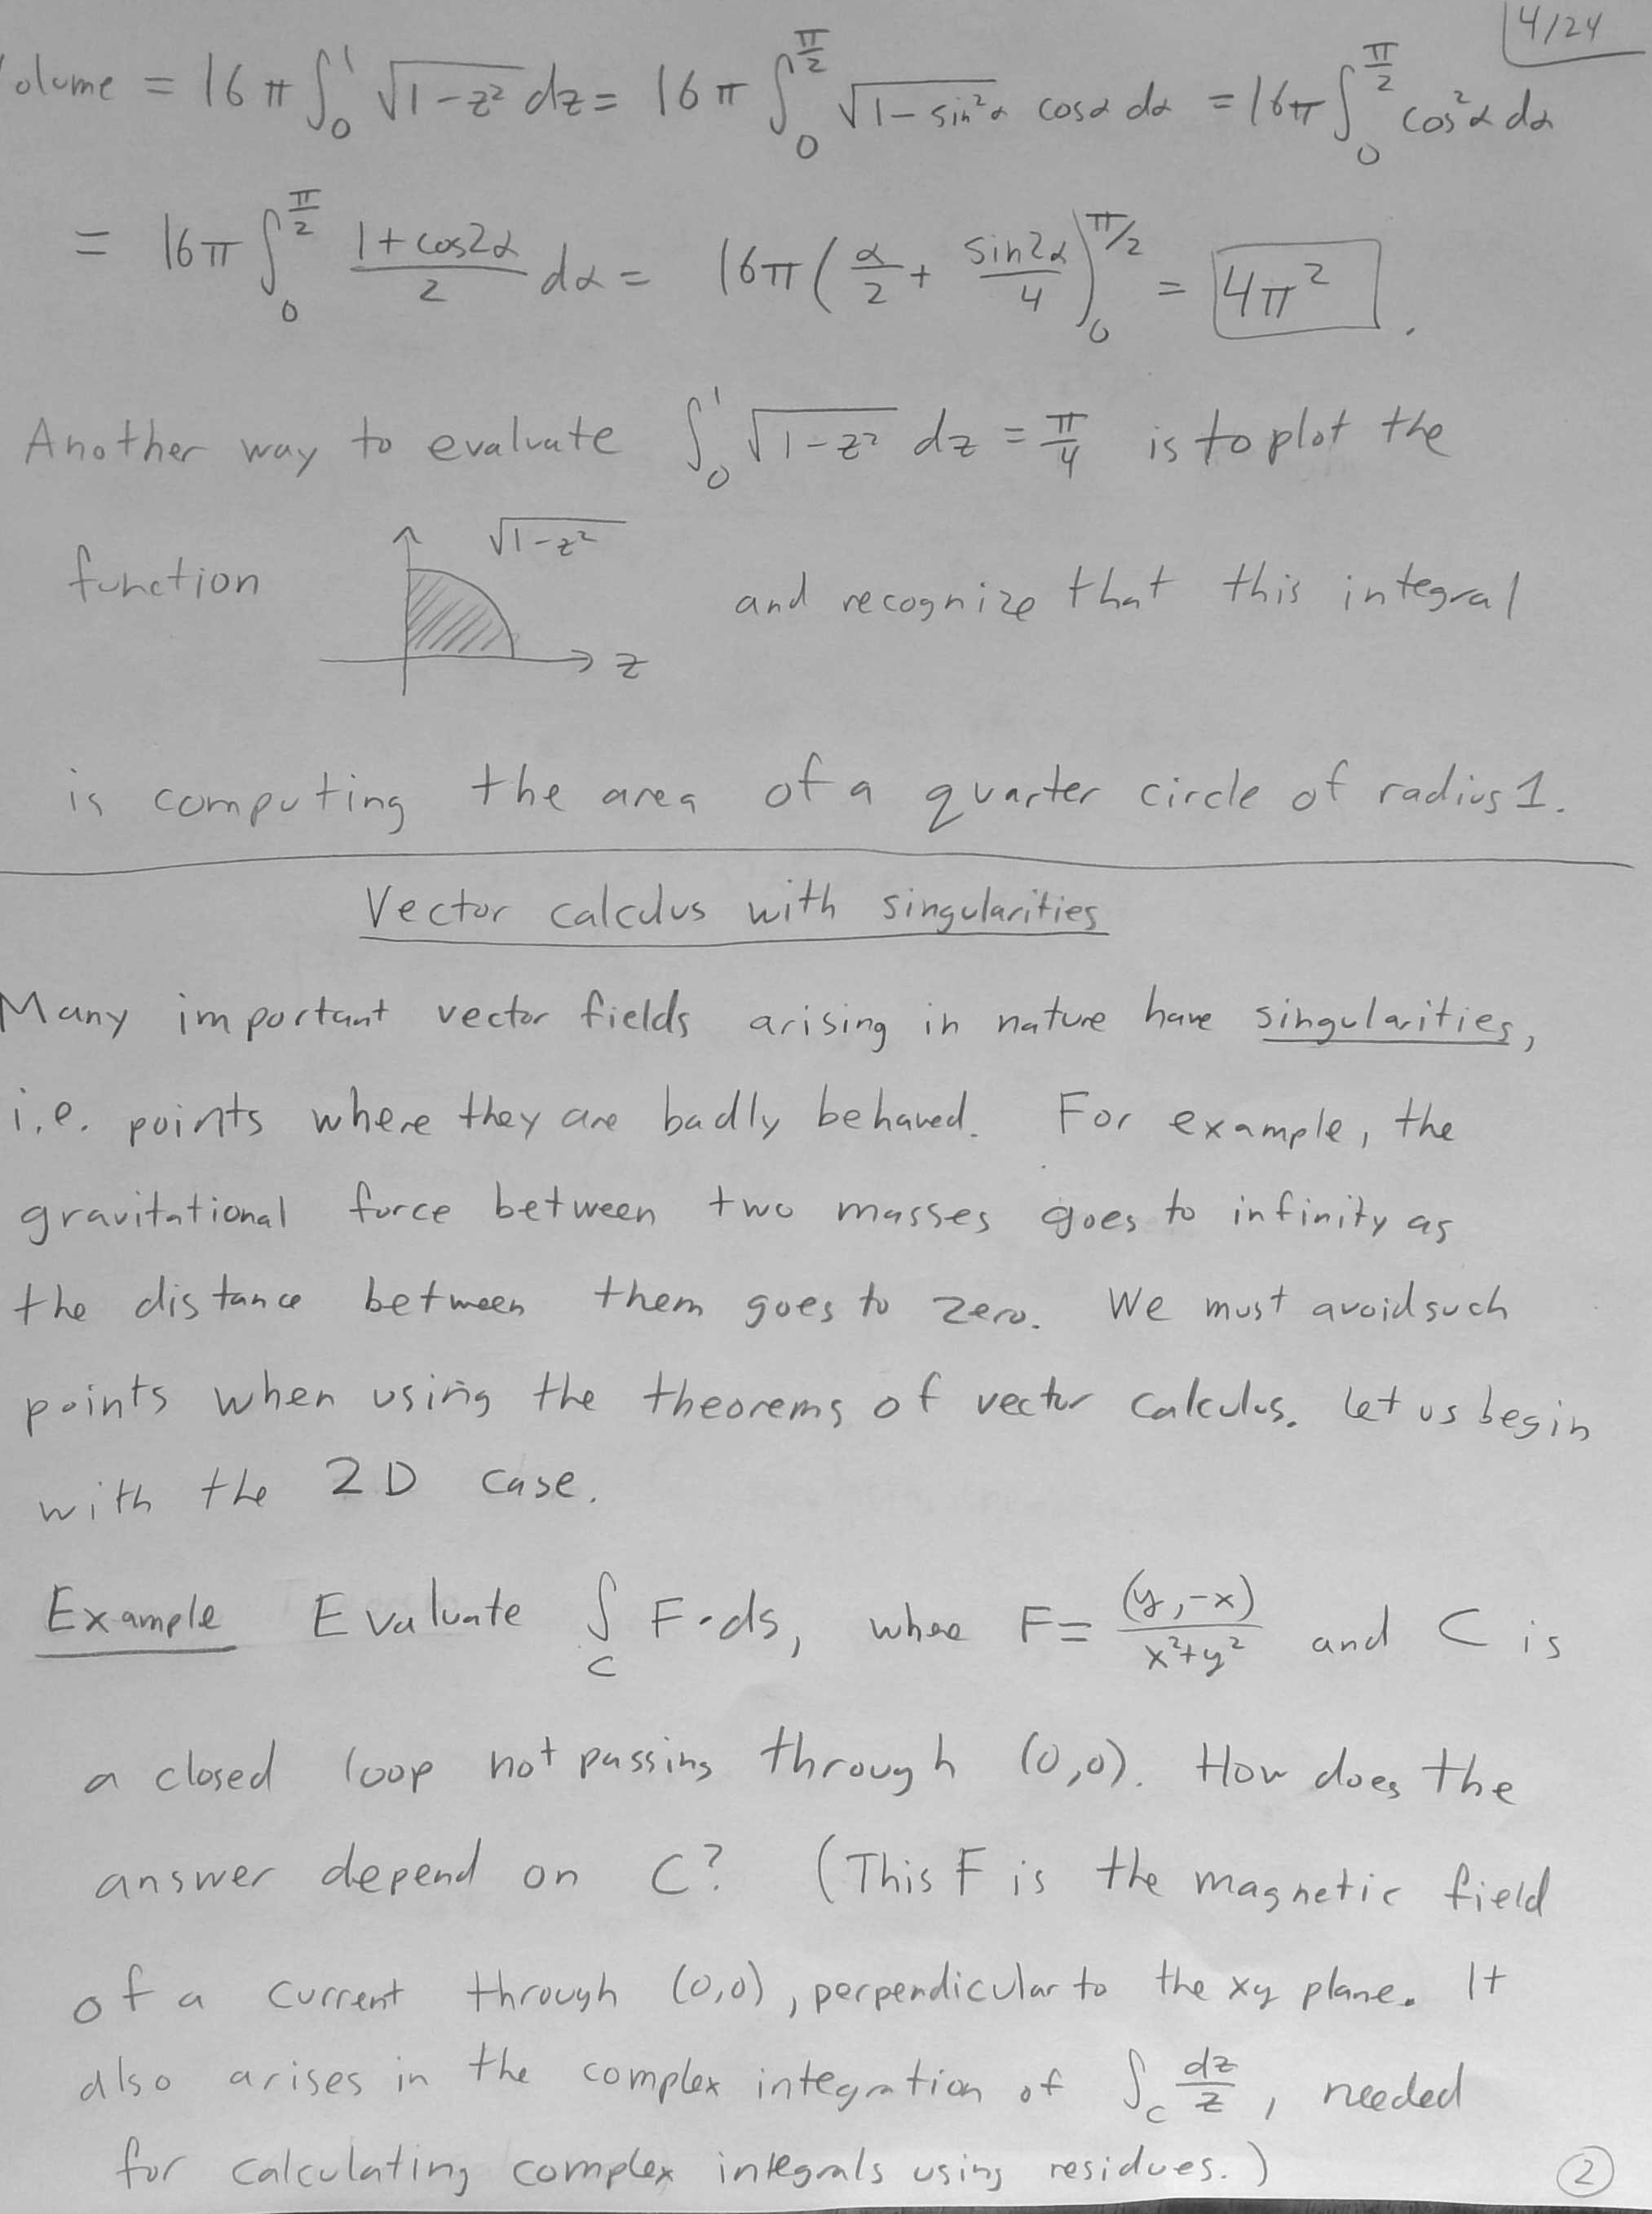 4/24
olume = 16π ∫₀¹ √(1-z²) dz = 16π ∫₀^(π/2) √(1-sin²α) cosα dα = 16π ∫₀^(π/2) cos²α dα
= 16π ∫₀^(π/2) (1+cos2α)/2 dα = 16π (α/2 + sin2α/4)₀^(π/2) = 4π².
Another way to evaluate ∫₀¹ √(1-z²) dz = π/4 is to plot the
√(1-z²)
function and recognize that this integral
z
is computing the area of a quarter circle of radius 1.
Vector calculus with singularities
Many important vector fields arising in nature have singularities,
i.e. points where they are badly behaved. For example, the
gravitational force between two masses goes to infinity as
the distance between them goes to zero. We must avoid such
points when using the theorems of vector calculus. Let us begin
with the 2D case.
Example Evaluate ∫_C F·ds, where F = (y,-x)/(x²+y²) and C is
a closed loop not passing through (0,0). How does the
answer depend on C? (This F is the magnetic field
of a current through (0,0), perpendicular to the xy plane. It
also arises in the complex integration of ∫_C dz/z, needed
for calculating complex integrals using residues.)
2